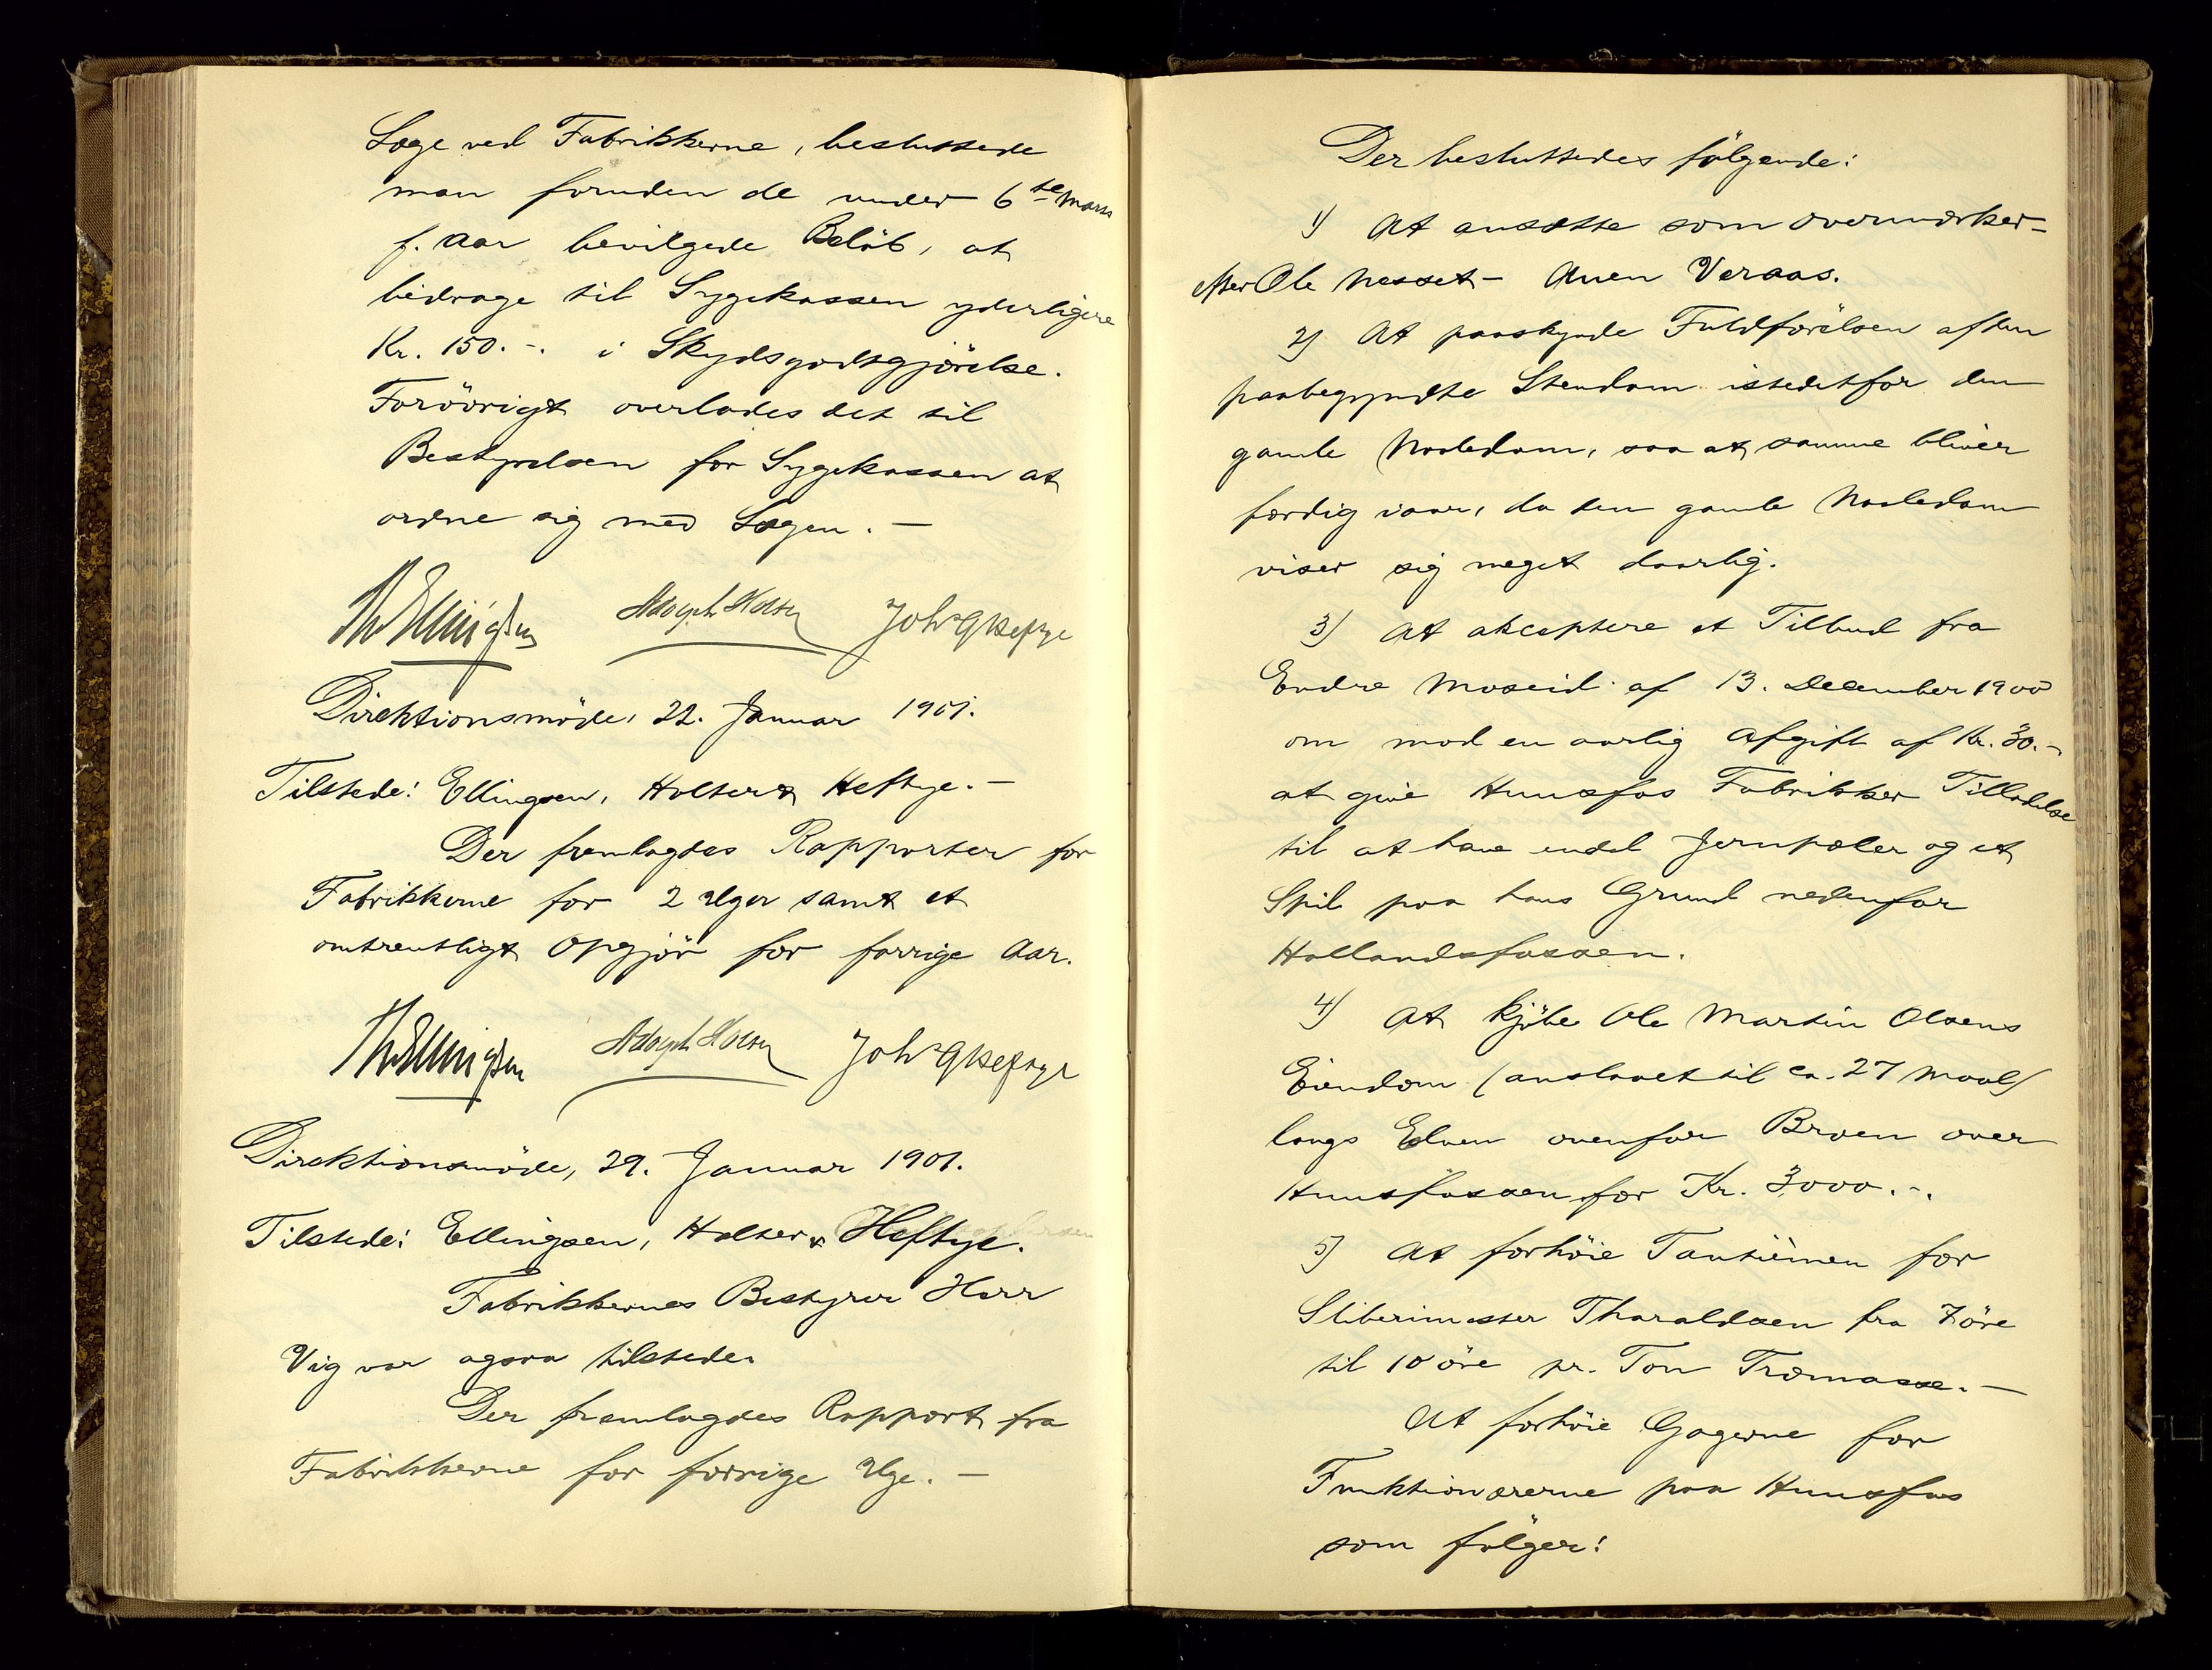 Læge ved Fabrikkerne, besluttede
man foruden de under 6te Marts
f. Aar bevilgede Beløb, at
bidrage til Sygekassen yderligere
Kr. 150.-. i Skydsgodtgjørelse.
Forøvrigt overlodes det til
Bestyrelsen for Sygekassen at
ordne sig med Lægen. —
Th Ellingsen Adolph Holter Joh G Heftye
Direktionsmøde, 22. Januar 1901.
Tilstede: Ellingsen, Holter & Heftye. —
Der fremlagdes Rapporter for
Fabrikkerne for 2 Uger samt et
omtrentligt Opgjør for forrige Aar.
Th Ellingsen Adolph Holter Joh G Heftye
Direktionsmøde, 29. Januar 1901.
Tilstede: Ellingsen, Holter & Heftye.
Fabrikkernes Bestyrer Herr
Vig var ogsaa tilstede.
Der fremlagdes Rapport fra
Fabrikkerne for forrige Uge. —
Der besluttedes følgende:
1) At ansætte som Overværker-
efter Ole Nesset - Anen Veraas.
2) At paaskynde Fuldførelsen af den
paabegyndte Stendam istedetfor den
gamle Naaledam, saa at samme bliver
færdig iaar, da den gamle Naaledam
viser sig meget daarlig.
3) At akceptere et Tilbud fra
Endre Moseid af 13. December 1900
om mod en aarlig Afgift af Kr. 30.-
at give Hunsfos Fabrikker Tilladelse
til at have endel Jernpæler og et
Spil paa hans Grund nedenfor
Hallandsfossen.
4) At kjøbe Ole Martin Olsens
Eiendom (anslaaet til ca. 27 Maal)
langs Elven ovenfor Broen over
Hunsfossen for Kr. 3,000.-.
5) At forhøie Tantièmen for
Sliberimester Tharaldsen fra 7 øre
til 10 øre pr. Ton Træmasse. —
At forhøie Gagerne for
Funktionærerne paa Hunsfos
som følger: